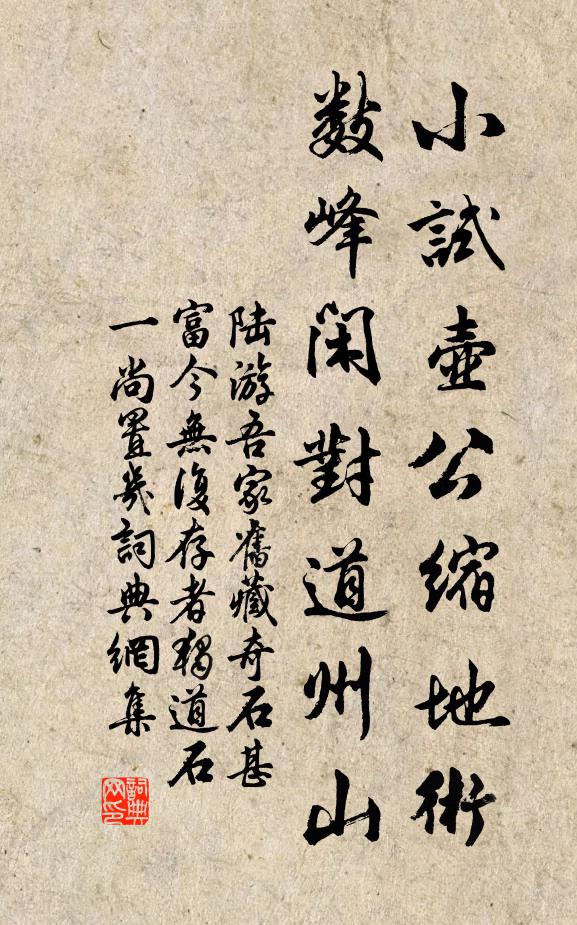 小試壺公縮地術
數峰閑對道州山
陸游吾家舊藏奇石甚
富今無復存者獨道石
一尚置几詞典網集
詞典
网印